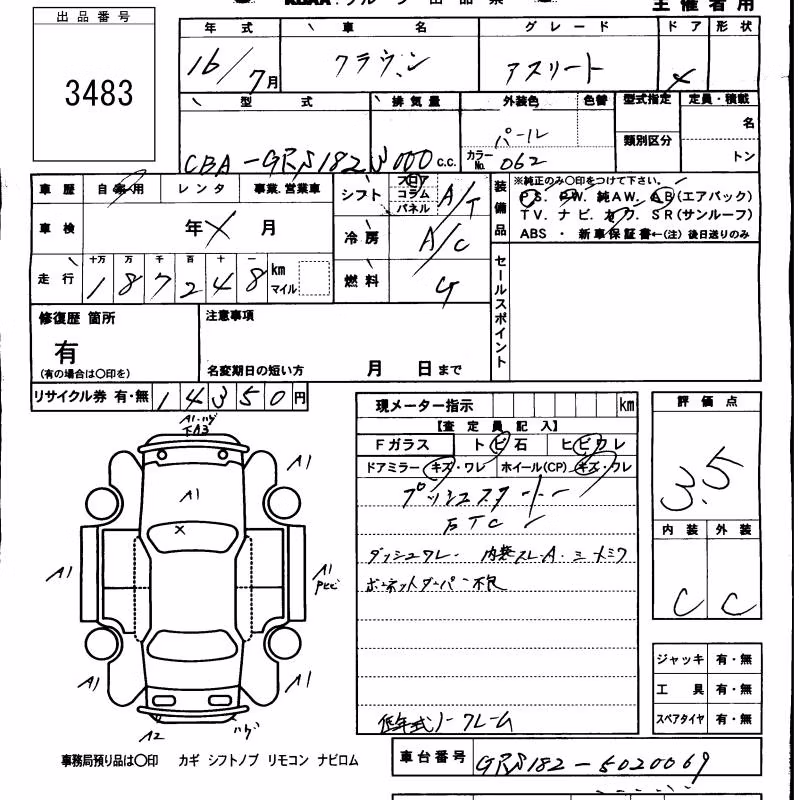 主催者用
出品番号
3483
年式 車名 グレード ドア 形状
16/7月 クラウン アスリート 4
型式 排気量 外装色 色替 型式指定 定員・積載
CBA-GRS182 3000 c.c. パール
カラーNo. 062 類別区分 名
トン
車歴 自家用 レンタ 事業.営業車
車検 年 月
走行 十万 万 千 百 十 一
187248 km マイル
シフト フロア コラム パネル A/T
冷房 A/C
燃料 G
装備品 ※純正のみ○印をつけて下さい。
PS. PW. 純AW. AB(エアバック)
TV. ナビ. カワ. SR(サンルーフ)
ABS ・ 新車保証書←(注)後日送りのみ
セールスポイント
修復歴 箇所
有
(有の場合は○印を)
注意事項
名変期日の短い方 月 日まで
リサイクル券 有・無 14350円
現メーター指示 km
【査定員記入】
Fガラス トビ石 ヒビワレ
ドアミラー キズ・ワレ ホイール(CP) キズ・ワレ
プッシュスタート
ETC
ダッシュワレ 内装スレ.A. シートシワ
ボンネットダンパー不良
低年式ノークレーム
評価点
3.5
内装 外装
C C
ジャッキ 有・無
工具 有・無
スペアタイヤ 有・無
A1.ハゲ
下A3
A1
A1
A1
A1
A1
A1
A2
ハゲ
事務局預り品は○印 カギ シフトノブ リモコン ナビロム
車台番号 GRS182-5020069